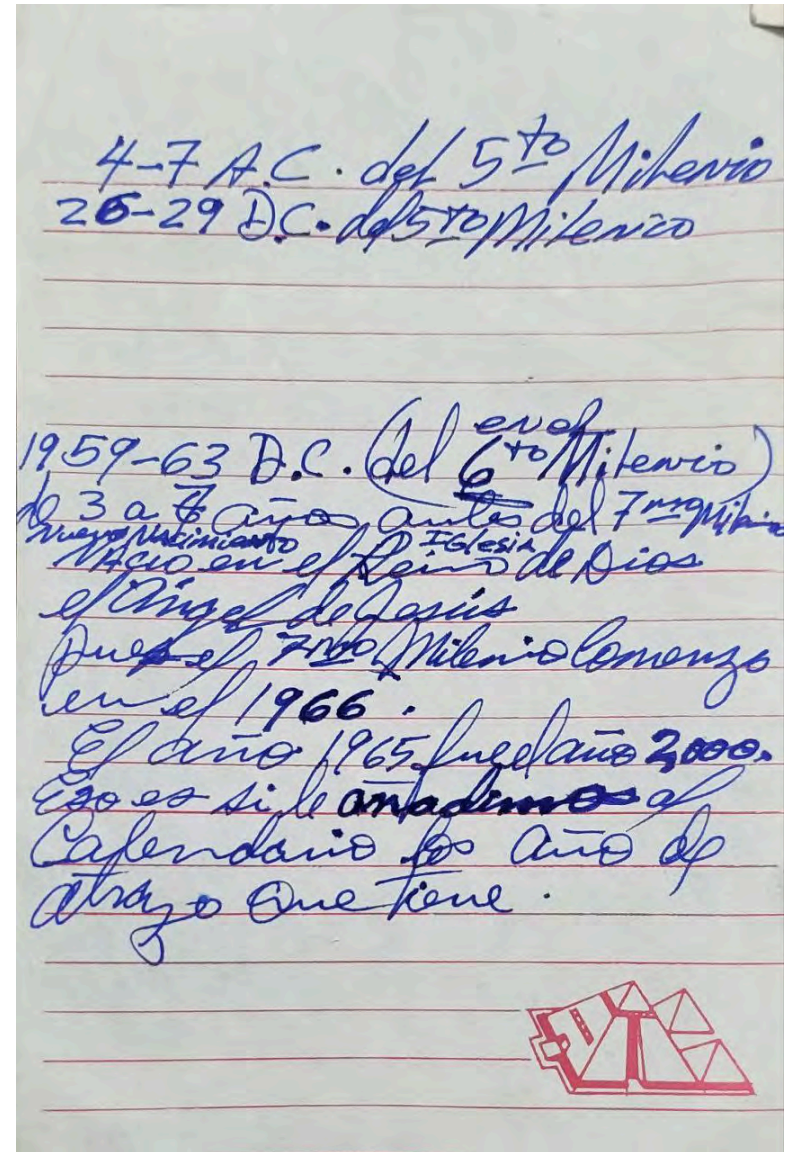 4-7 A.C. del 5to Milenio
26-29 D.C. del 5to Milenio
en el
1959-63 D.C. (del 6to Milenio)
de 3 a 7 años antes del 7mo Milenio
Nuevo Nacimiento Iglesia
Nació en el Reino de Dios
el Angel de Jesús
pues el 7mo Milenio Comenzo
en el 1966.
El año 1965 fue el año 2,000.
Eso es si le añadimos al
Calendario los año de
atrazo que tiene.